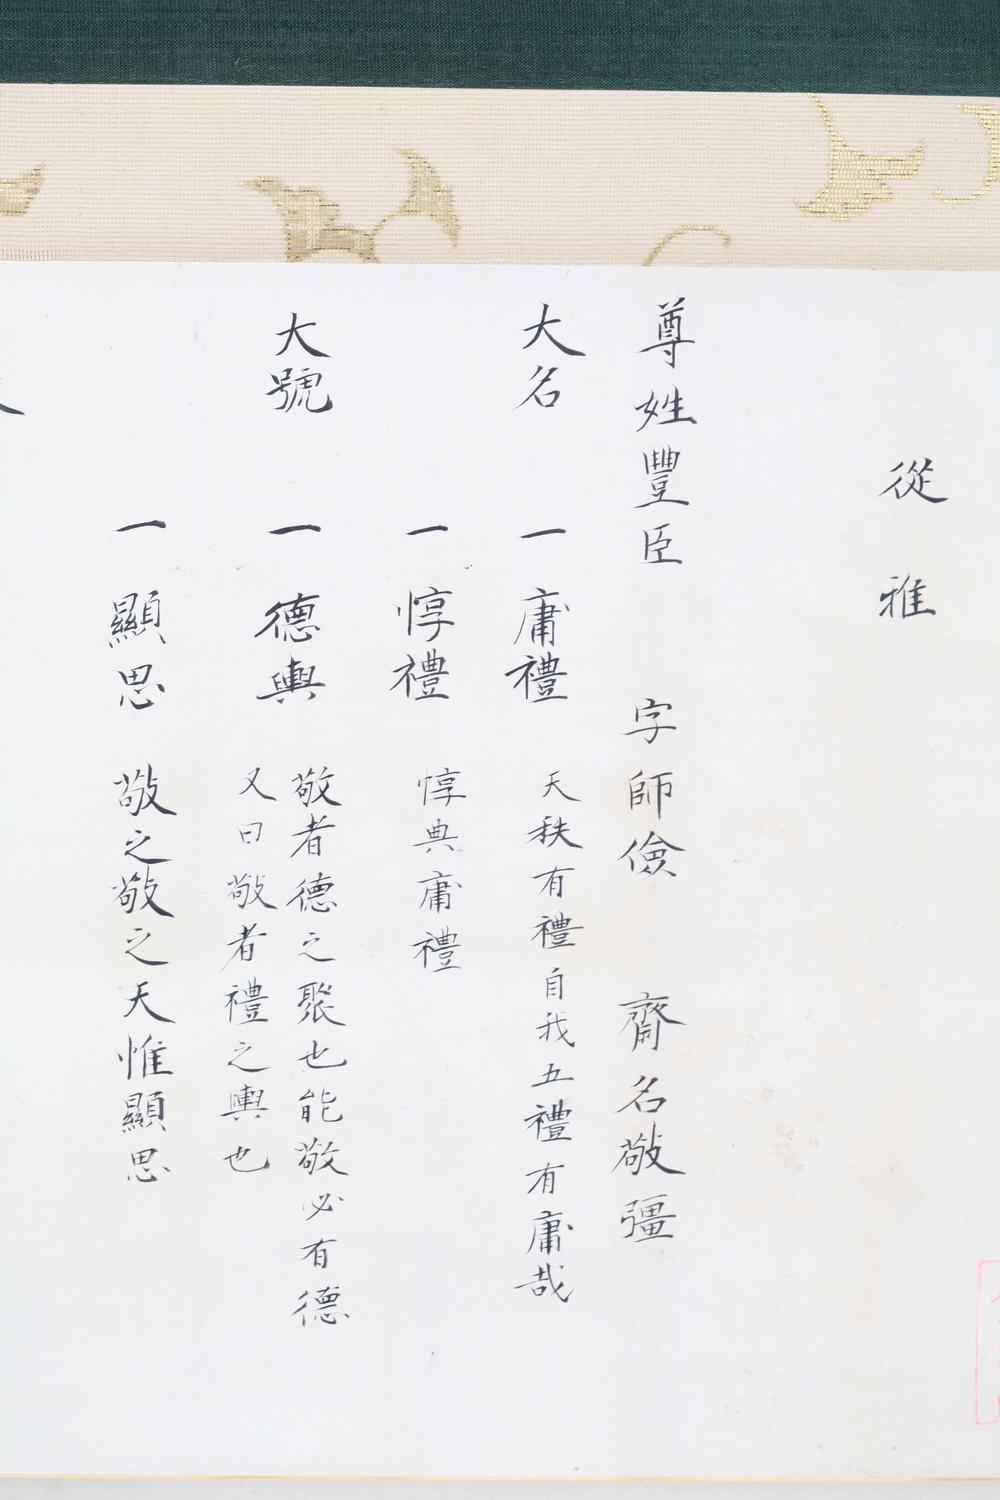 從雅
尊姓豐臣 字師儉 齋名敬彊
大名 一 庸禮 天秩有禮自我五禮有庸哉
一 惇禮 惇典庸禮
大號 一 德輿 敬者德之聚也能敬必有德
又曰敬者禮之輿也
一 顯思 敬之敬之天惟顯思